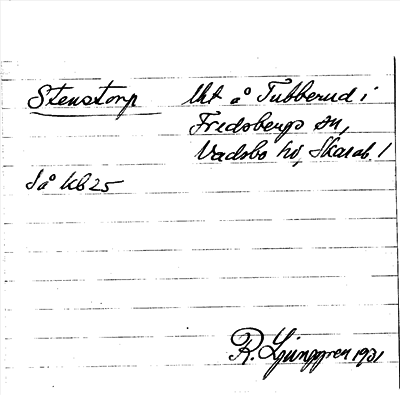 Stenstorp lht å Tubberud i
Fredsbergs sn,
Vadsbo hd, Skarab. l
Så kb 25
R. Ljunggren 1931